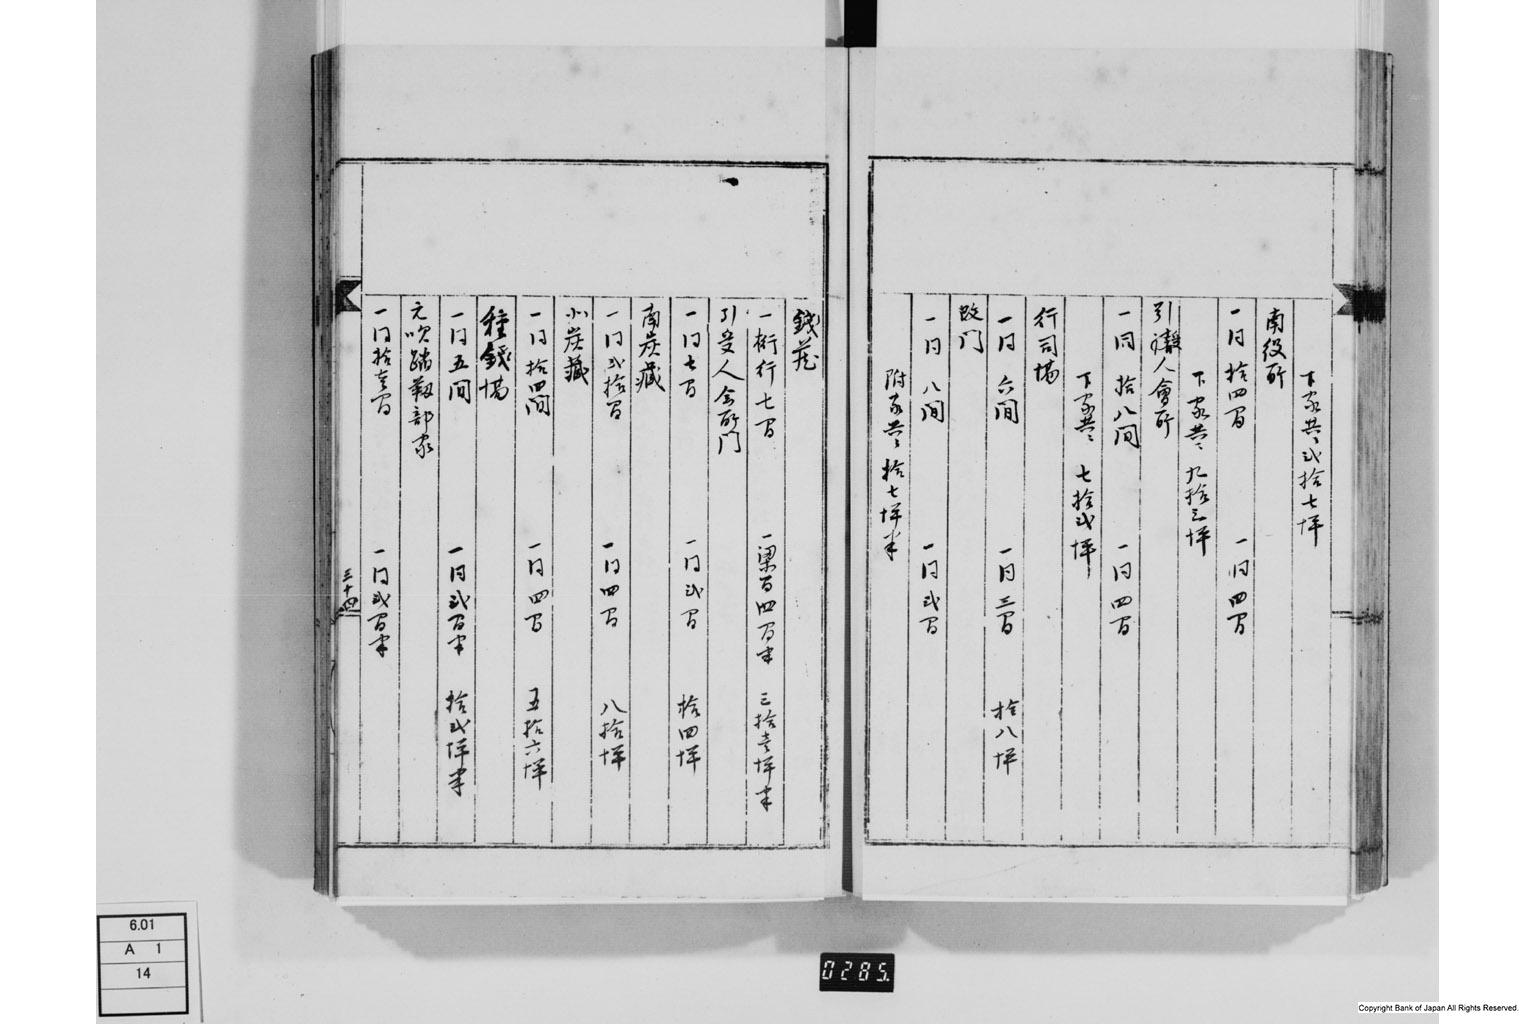 下家共ニ弐拾七坪
南役所
一同 拾四間 一同四間
下家共ニ 九拾三坪
引請人會所
一同 拾八間 一同四間
下家共ニ 七拾弐坪
行司場
一同 六間 一同三間 拾八坪
改門
一同 八間 一同弐間
附家共ニ 拾七坪半
銭蔵
一桁行七間 一梁間四間半 三拾壱坪半
引受人会所門
一同七間 一同弐間 拾四坪
南炭蔵
一同弐拾間 一同四間 八拾坪
小炭藏
一同拾四間 一同四間 五拾六坪
種銭場
一同五間 一同弐間半 拾弐坪半
元吹踏鞴部家
一同拾壱間 一同弐間半
三十四
6.01
A 1
14
0285.
Copyright Bank of Japan All Rights Reserved.